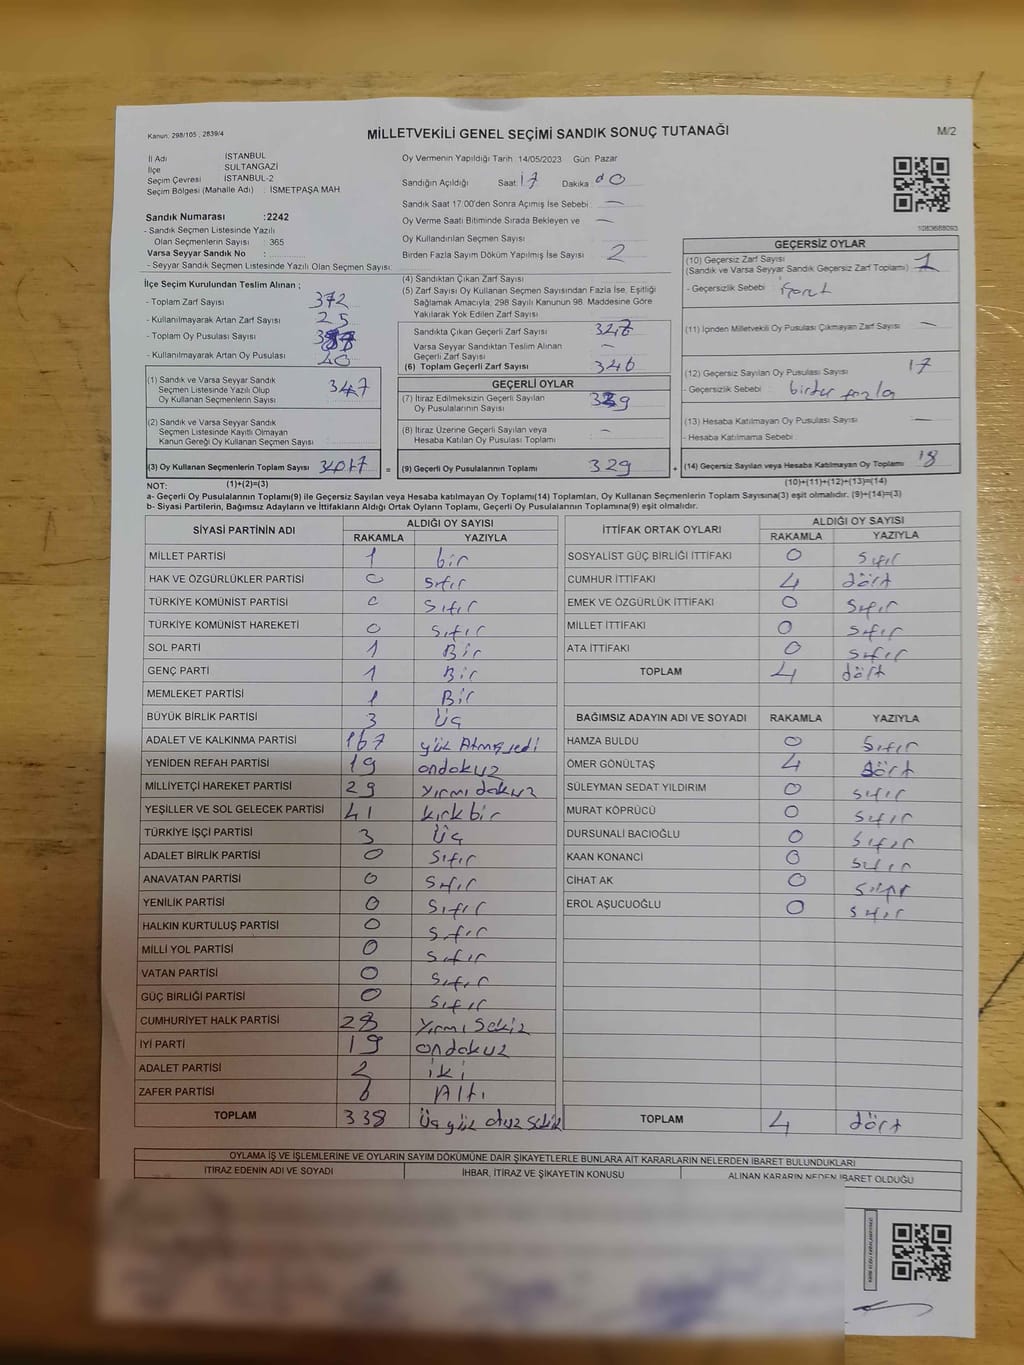 Kanun; 298/105 , 2839/4
MİLLETVEKİLİ GENEL SEÇİMİ SANDIK SONUÇ TUTANAĞI
M/2
İl Adı İSTANBUL
İlçe SULTANGAZİ
Seçim Çevresi İSTANBUL-2
Seçim Bölgesi (Mahalle Adı) : İSMETPAŞA MAH
Sandık Numarası :2242
- Sandık Seçmen Listesinde Yazılı
Olan Seçmenlerin Sayısı : 365
Varsa Seyyar Sandık No :
- Seyyar Sandık Seçmen Listesinde Yazılı Olan Seçmen Sayısı:
Oy Vermenin Yapıldığı Tarih 14/05/2023 Gün: Pazar
Sandığın Açıldığı Saat 17 Dakika
Sandık Saat 17:00'den Sonra Açımış İse Sebebi : —
Oy Verme Saati Bitiminde Sırada Bekleyen ve —
Oy Kullandırılan Seçmen Sayısı
Birden Fazla Sayım Döküm Yapılmış İse Sayısı 2
1083688093
İlçe Seçim Kurulundan Teslim Alınan ;
- Toplam Zarf Sayısı 372
- Kullanılmayarak Artan Zarf Sayısı : 25
- Toplam Oy Pusulası Sayısı
- Kullanılmayarak Artan Oy Pusulası
(1) Sandık ve Varsa Seyyar Sandık
Seçmen Listesinde Yazılı Olup
Oy Kullanan Seçmenlerin Sayısı 347
(2) Sandık ve Varsa Seyyar Sandık
Seçmen Listesinde Kayıtlı Olmayan
Kanun Gereği Oy Kullanan Seçmen Sayısı
(3) Oy Kullanan Seçmenlerin Toplam Sayısı
(1)+(2)=(3)
(4) Sandıktan Çıkan Zarf Sayısı
(5) Zarf Sayısı Oy Kullanan Seçmen Sayısından Fazla İse, Eşitliği
Sağlamak Amacıyla, 298 Sayılı Kanunun 98. Maddesine Göre
Yakılarak Yok Edilen Zarf Sayısı
Sandıkta Çıkan Geçerli Zarf Sayısı
Varsa Seyyar Sandıktan Teslim Alınan —
Geçerli Zarf Sayısı
(6) Toplam Geçerli Zarf Sayısı 346
GEÇERLİ OYLAR
(7) İtiraz Edilmeksizin Geçerli Sayılan
Oy Pusulalarının Sayısı
(8) İtiraz Üzerine Geçerli Sayılan veya —
Hesaba Katılan Oy Pusulası Toplamı
= (9) Geçerli Oy Pusulalarının Toplamı 329
GEÇERSİZ OYLAR
(10) Geçersiz Zarf Sayısı 1
(Sandık ve Varsa Seyyar Sandık Geçersiz Zarf Toplamı)
- Geçersizlik Sebebi
(11) İçinden Milletvekili Oy Pusulası Çıkmayan Zarf Sayısı —
(12) Geçersiz Sayılan Oy Pusulası Sayısı 17
- Geçersizlik Sebebi : birden fazla
(13) Hesaba Katılmayan Oy Pusulası Sayısı —
- Hesaba Katılmama Sebebi
+ (14) Geçersiz Sayılan veya Hesaba Katılmayan Oy Toplamı 18
(10)+(11)+(12)+(13)=(14)
NOT:
a- Geçerli Oy Pusulalarının Toplamı(9) ile Geçersiz Sayılan veya Hesaba katılmayan Oy Toplamı(14) Toplamları, Oy Kullanan Seçmenlerin Toplam Sayısına(3) eşit olmalıdır. (9)+(14)=(3)
b- Siyasi Partilerin, Bağımsız Adayların ve İttifakların Aldığı Ortak Oyların Toplamı, Geçerli Oy Pusulalarının Toplamına(9) eşit olmalıdır.
SİYASİ PARTİNİN ADI ALDIĞI OY SAYISI
RAKAMLA YAZIYLA
MİLLET PARTİSİ 1 bir
HAK VE ÖZGÜRLÜKLER PARTİSİ 0 sıfır
TÜRKİYE KOMÜNİST PARTİSİ 0 sıfır
TÜRKİYE KOMÜNİST HAREKETİ 0 sıfır
SOL PARTİ 1 Bir
GENÇ PARTİ 1 Bir
MEMLEKET PARTİSİ 1 Bir
BÜYÜK BİRLİK PARTİSİ 3 Üç
ADALET VE KALKINMA PARTİSİ 167 yüz Atmış yedi
YENİDEN REFAH PARTİSİ 19 ondokuz
MİLLİYETÇİ HAREKET PARTİSİ 29 yırmı dokuz
YEŞİLLER VE SOL GELECEK PARTİSİ 41 kırk bir
TÜRKİYE İŞÇİ PARTİSİ 3 Üç
ADALET BİRLİK PARTİSİ 0 sıfır
ANAVATAN PARTİSİ 0 sıfır
YENİLİK PARTİSİ 0 sıfır
HALKIN KURTULUŞ PARTİSİ 0 sıfır
MİLLİ YOL PARTİSİ 0 sıfır
VATAN PARTİSİ 0 sıfır
GÜÇ BİRLİĞİ PARTİSİ 0 sıfır
CUMHURİYET HALK PARTİSİ 28 yırmı sekiz
İYİ PARTİ 19 ondokuz
ADALET PARTİSİ 2 iki
ZAFER PARTİSİ 6 Altı
TOPLAM 338 Üç yüz otuz sekiz
İTTİFAK ORTAK OYLARI ALDIĞI OY SAYISI
RAKAMLA YAZIYLA
SOSYALİST GÜÇ BİRLİĞİ İTTİFAKI 0 sıfır
CUMHUR İTTİFAKI 4 dört
EMEK VE ÖZGÜRLÜK İTTİFAKI 0 sıfır
MİLLET İTTİFAKI 0 sıfır
ATA İTTİFAKI 0 sıfır
TOPLAM 4 dört
BAĞIMSIZ ADAYIN ADI VE SOYADI RAKAMLA YAZIYLA
HAMZA BULDU 0 sıfır
ÖMER GÖNÜLTAŞ 4 dört
SÜLEYMAN SEDAT YILDIRIM 0 sıfır
MURAT KÖPRÜCÜ 0 sıfır
DURSUNALİ BACIOĞLU 0 sıfır
KAAN KONANCİ 0 sıfır
CİHAT AK 0 sıfır
EROL AŞUCUOĞLU 0 sıfır
TOPLAM 4 dört
OYLAMA İŞ VE İŞLEMLERİNE VE OYLARIN SAYIM DÖKÜMÜNE DAİR ŞİKAYETLERLE BUNLARA AİT KARARLARIN NELERDEN İBARET BULUNDUKLARI
İTİRAZ EDENİN ADI VE SOYADI İHBAR, İTİRAZ VE ŞİKAYETİN KONUSU ALINAN KARARIN NEDEN İBARET OLDUĞU